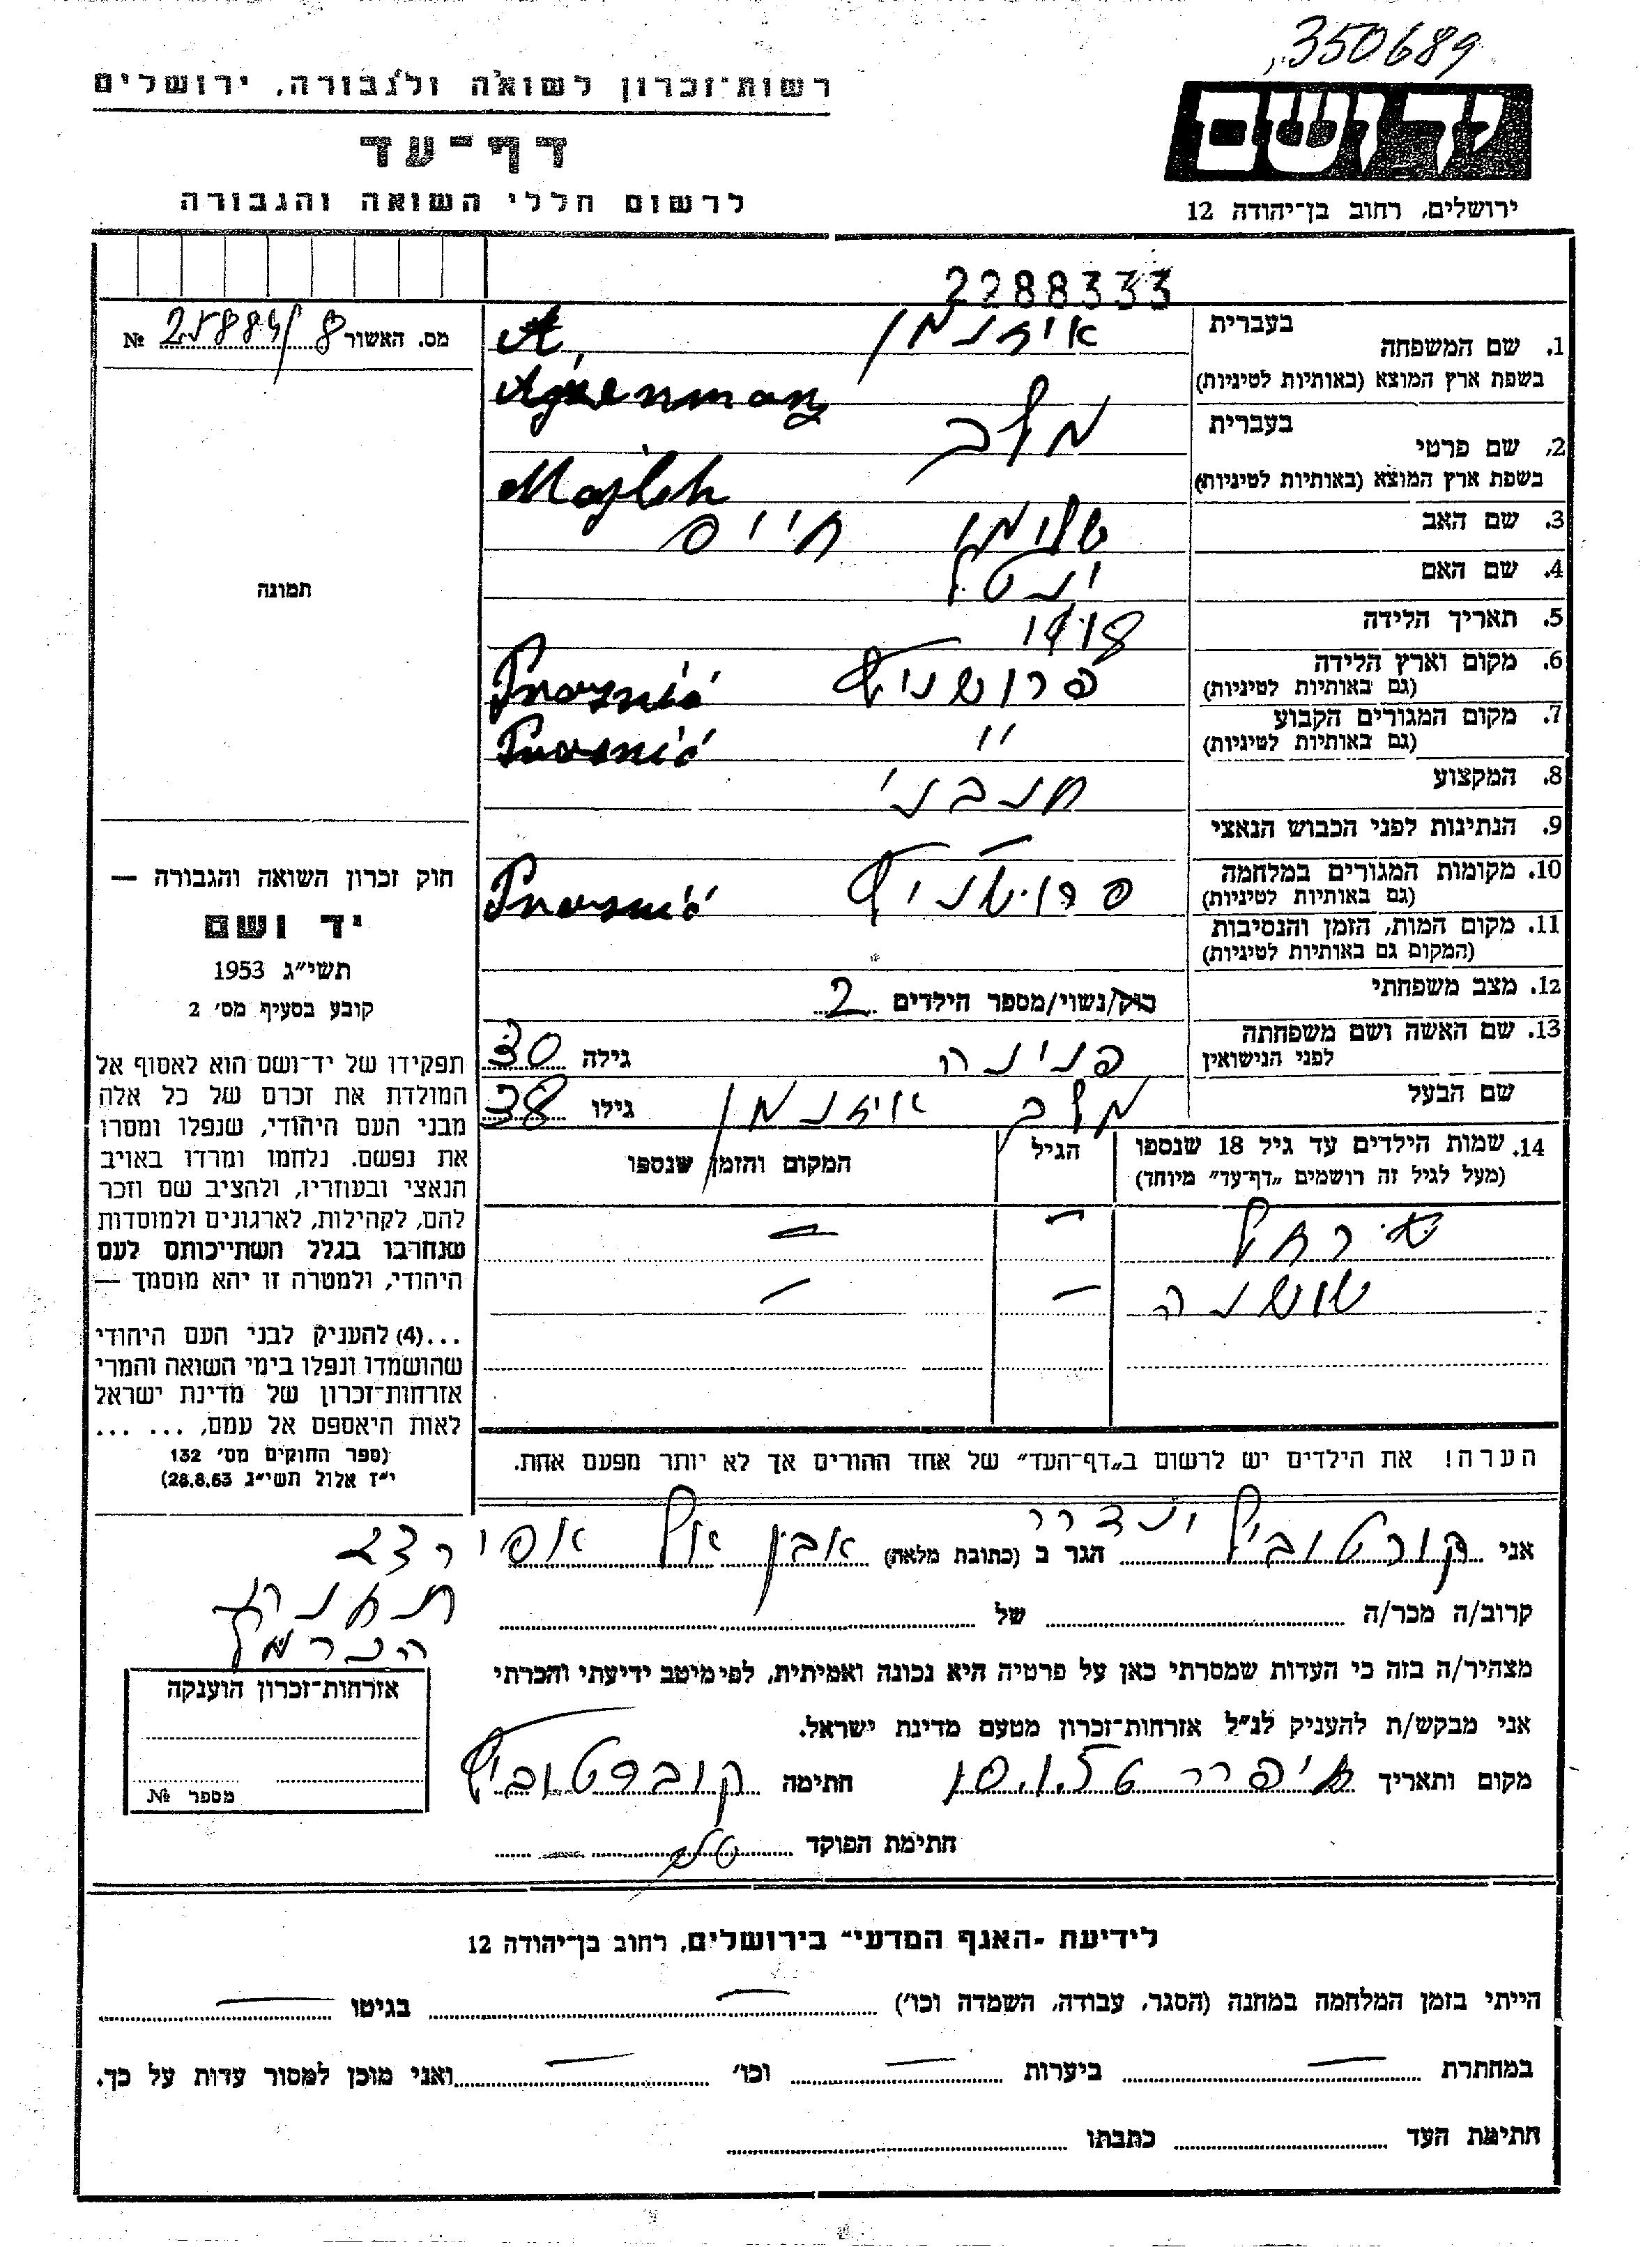 350689
רשות־זכרון לשואה ולגבורה, ירושלים
יד ושם
דף־עד
לרשום חללי השואה והגבורה
ירושלים, רחוב בן־יהודה 12
2288333
מס. האשור 25884/8 №
1. שם המשפחה
בעברית
איזנמן
A,
בשפת ארץ המוצא (באותיות לטיניות)
Ajzenman
2. שם פרטי
בעברית
בשפת ארץ המוצא (באותיות לטיניות)
Majlech
3. שם האב
שלימן חיים
4. שם האם
5. תאריך הלידה
1918
6. מקום וארץ הלידה
(גם באותיות לטיניות)
7. מקום המגורים הקבוע
(גם באותיות לטיניות)
"
8. המקצוע
חנבני
9. הנתינות לפני הכבוש הנאצי
10. מקומות המגורים במלחמה
(גם באותיות לטיניות)
11. מקום המות, הזמן והנסיבות
(המקום גם באותיות לטיניות)
12. מצב משפחתי
רוק/נשוי/מספר הילדים 2
13. שם האשה ושם משפחתה
לפני הנישואין
פנינה
גילה 30
שם הבעל
איזנמן
גילו 38
14. שמות הילדים עד גיל 18 שנספו
(מעל לגיל זה רושמים „דף־עד" מיוחד)
הגיל
המקום והזמן שנספו
רחל – –
שושנה – –
תמונה
חוק זכרון השואה והגבורה —
יד ושם
תשי״ג 1953
קובע בסעיף מס׳ 2
תפקידו של יד־ושם הוא לאסוף אל
המולדת את זכרם של כל אלה
מבני העם היהודי, שנפלו ומסרו
את נפשם. נלחמו ומרדו באויב
הנאצי ובעוזריו, ולהציב שם וזכר
להם, לקהילות, לארגונים ולמוסדות
שנחרבו בגלל השתייכותם לעם
היהודי, ולמטרה זו יהא מוסמך —
...(4) להעניק לבני העם היהודי
שהושמדו ונפלו בימי השואה והמרי
אזרחות־זכרון של מדינת ישראל
לאות היאספם אל עמם, ... ...
(ספר החוקים מס׳ 132
י״ז אלול תשי״ג 28.8.53)
הערה! את הילדים יש לרשום ב„דף־העד" של אחד ההורים אך לא יותר מפעם אחת.
אני הגר ב (כתובת מלאה) אבן אל אפי
הכרמל
קרוב/ה מכר/ה של
מצהיר/ה בזה כי העדות שמסרתי כאן על פרטיה היא נכונה ואמיתית, לפי מיטב ידיעתי והכרתי
אני מבקש/ת להעניק לנ״ל אזרחות־זכרון מטעם מדינת ישראל.
מקום ותאריך חתימה
חתימת הפוקד
אזרחות־זכרון הוענקה
מספר №
לידיעת „האגף המדעי" בירושלים, רחוב בן־יהודה 12
הייתי בזמן המלחמה במחנה (הסגר, עבודה, השמדה וכו׳) – בגיטו –
במחתרת – ביערות – וכו׳ – ואני מוכן למסור עדות על כך.
חתימת העד כתבתו